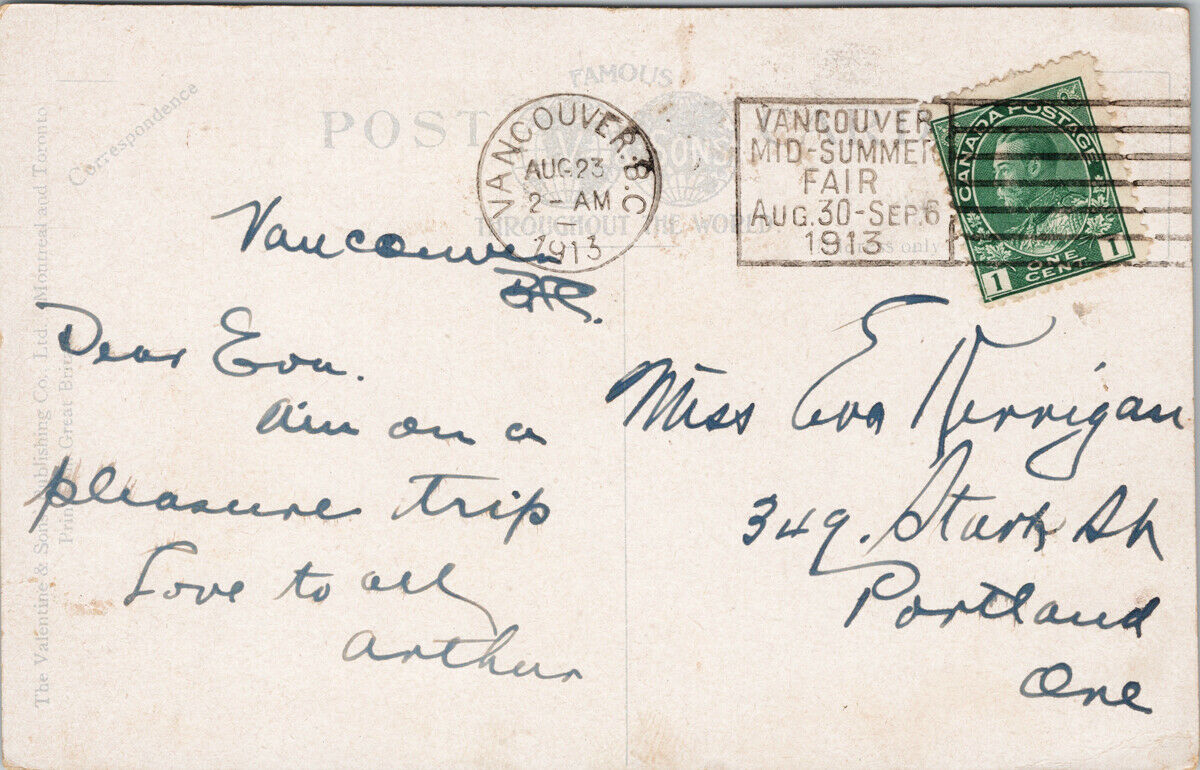 The Valentine & Sons Publishing Co., Ltd. Montreal and Toronto
Printed in Great Britain
Correspondence
POST
FAMOUS
THROUGHOUT THE WORLD
VANCOUVER. B.C
AUG 23
2 - AM
1913
VANCOUVER
MID-SUMMER
FAIR
AUG. 30-SEP. 6
1913
CANADA POSTAGE
1 ONE CENT 1
Vancouver
B.C.
Dear Eva.
Am on a
pleasure trip
Love to all
Arthur
Miss Eva Kerrigan
349. Stark St
Portland
Ore